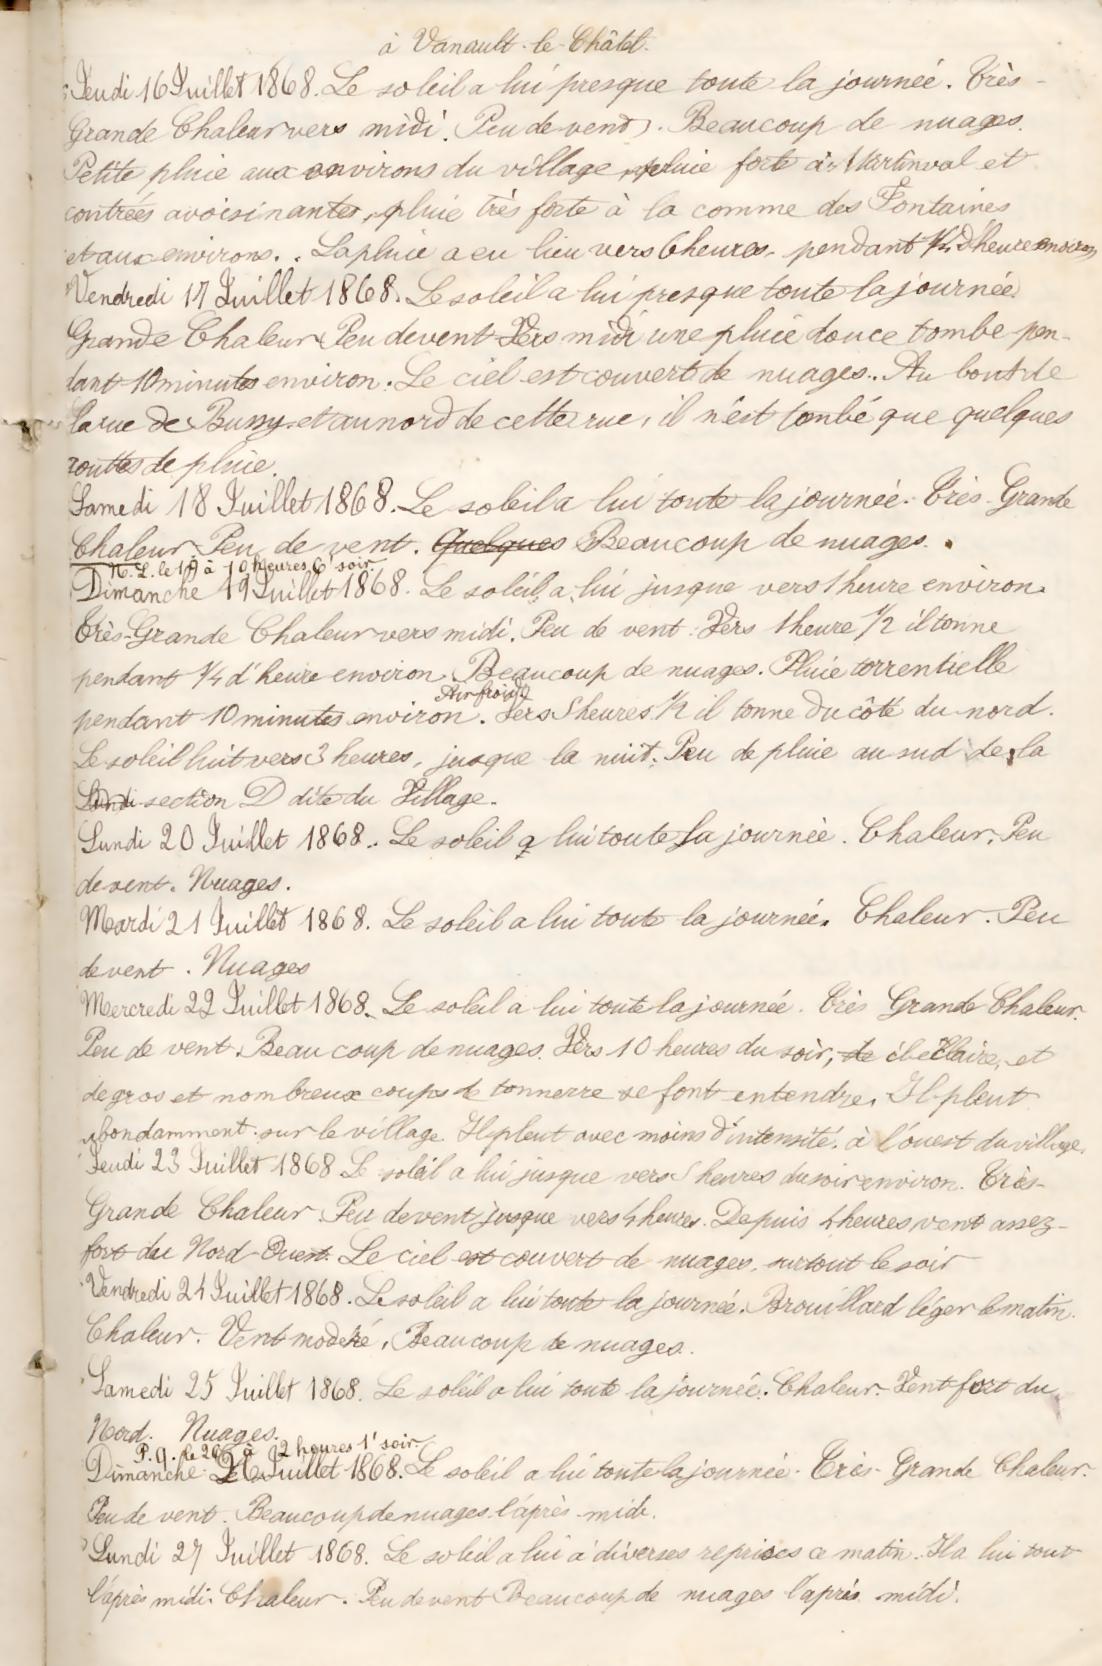 à Vanault-le-Châtel.
Jeudi 16 Juillet 1868. Le soleil a lui presque toute la journée. Très-
Grande Chaleur vers midi. Peu de vent. Beaucoup de nuages.
Petite pluie aux environs du village, pluie forte à Martinval et
contrées avoisinantes, pluie très forte à la comme des Fontaines
et aux environs. La pluie a eu lieu vers 6 heures. pendant 1/4 d'heure environ
Vendredi 17 Juillet 1868. Le soleil a lui presque toute la journée.
Grande Chaleur Peu de vent Vers midi une pluie douce tombe pen-
dant 10 minutes environ. Le ciel est couvert de nuages. Au bout de
la rue de Bussy et au nord de cette rue, il n'est tombé que quelques
gouttes de pluie.
Samedi 18 Juillet 1868. Le soleil a lui toute la journée. Très-Grande
Chaleur Peu de vent. Quelques Beaucoup de nuages.
N. L. le 19 à 10 heures 6' soir.
Dimanche 19 Juillet 1868. Le soleil a lui jusque vers 1 heure environ.
Très-Grande Chaleur vers midi. Peu de vent. Vers 1 heure 1/2 il tonne
pendant 1/4 d'heure environ. Beaucoup de nuages. Pluie torrentielle
Air froid
pendant 10 minutes environ. Vers 5 heures 1/2 il tonne du côté du nord.
Le soleil luit vers 3 heures, jusque la nuit. Peu de pluie au sud de la
Lundi section D dite du Village.
Lundi 20 Juillet 1868. Le soleil a lui toute la journée. Chaleur. Peu
de vent. Nuages.
Mardi 21 Juillet 1868. Le soleil a lui toute la journée. Chaleur. Peu
de vent. Nuages
Mercredi 22 Juillet 1868. Le soleil a lui toute la journée. Très Grande Chaleur.
Peu de vent. Beaucoup de nuages. Vers 10 heures du soir, de Eclaire, et
de gros et nombreux coups de tonnerre se font entendre. Il pleut
abondamment sur le village. Il pleut avec moins d'intensité à l'ouest du village.
Jeudi 23 Juillet 1868 Le soleil a lui jusque vers 5 heures du soir environ. Très-
Grande Chaleur Peu de vent jusque vers 4 heures. Depuis 4 heures vent assez-
fort du Nord-Ouest. Le ciel est couvert de nuages, surtout le soir
Vendredi 24 Juillet 1868. Le soleil a lui toute la journée. Brouillard léger le matin.
Chaleur. Vent modéré. Beaucoup de nuages.
Samedi 25 Juillet 1868. Le soleil a lui toute la journée. Chaleur. Vent fort du
Nord. Nuages.
P. Q. le 26 à 12 heures 1' soir.
Dimanche 26 Juillet 1868. Le soleil a lui toute la journée. Très-Grande Chaleur.
Peu de vent. Beaucoup de nuages l'après-midi.
Lundi 27 Juillet 1868. Le soleil a lui à diverses reprises ce matin. Il a lui tout
l'après midi. Chaleur. Peu de vent Beaucoup de nuages l'après midi.